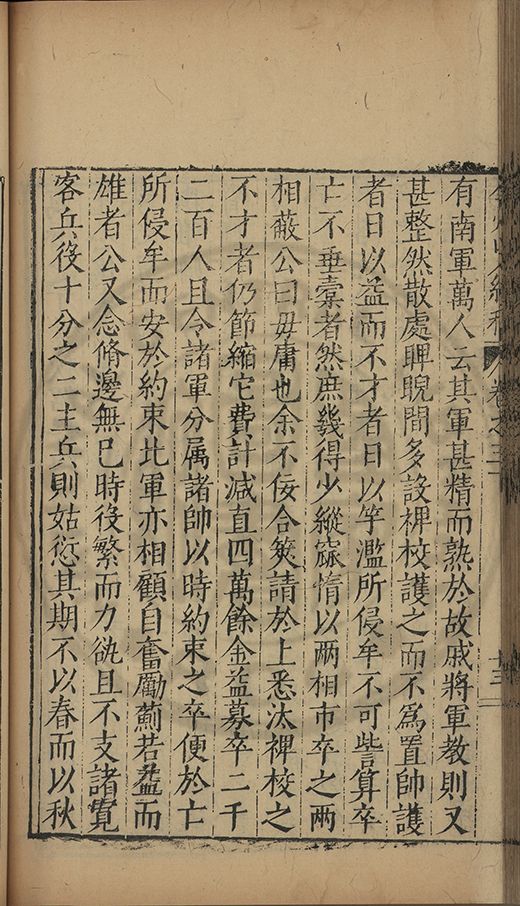 卷之三
十三
有南軍萬人云其軍甚精而熟於故戚將軍教則又
甚整然散處睥睨間多設裨校護之而不爲置帥護
者日以益而不才者日以竽濫所侵牟不可訾算卒
亡不垂橐者然庶幾得少縱窳惰以兩相市卒之兩
相蔽公曰毋庸也余不佞合筴請於上悉汰裨校之
不才者仍節縮它費計減直四萬餘金益募卒二千
二百人且令諸軍分属諸帥以時約束之卒便於亡
所侵牟而安於約束比軍亦相顧自奮勵薊若葢而
雄者公又念脩邊無巳時役繁而力詘且不支諸覔
客兵役十分之二主兵則姑愆其期不以春而以秋